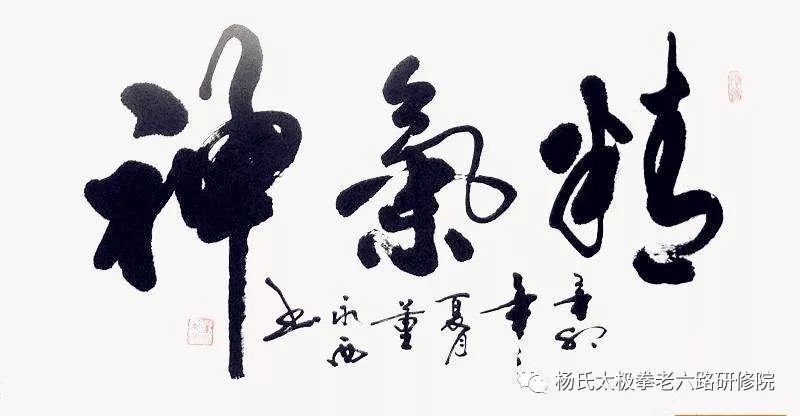 精氣神
夏月董永西书
杨氏太极拳老六路研修院